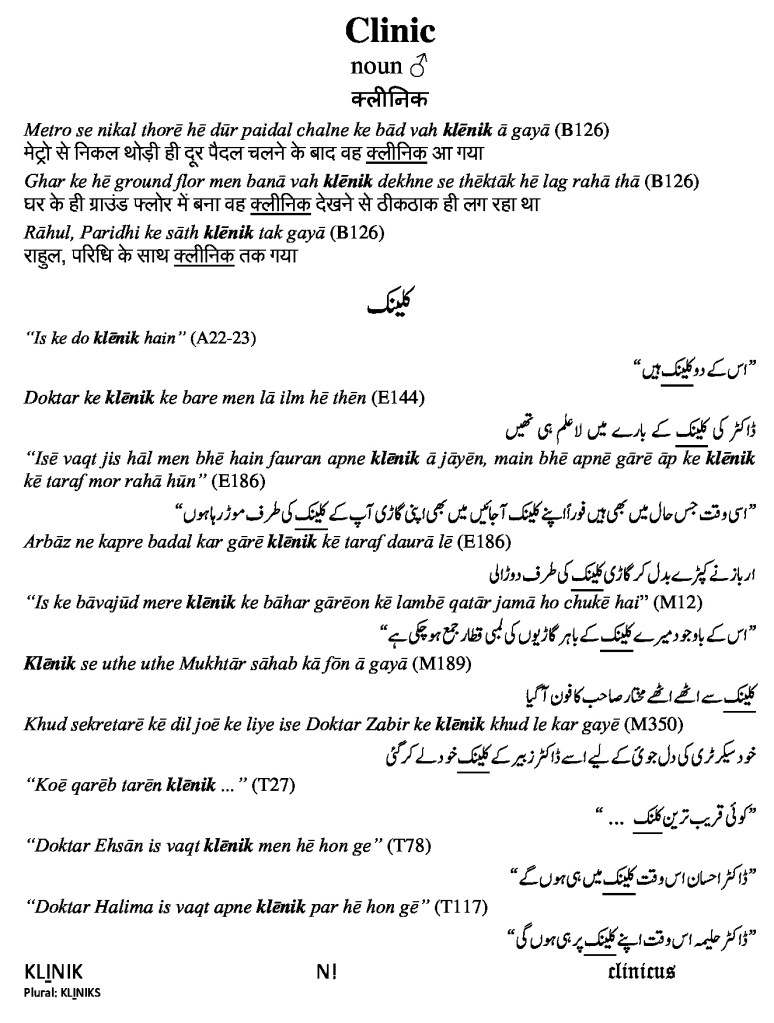 Clinic
noun ♂
क्लीनिक
Metro se nikal thorē hē dūr paidal chalne ke bād vah klēnik ā gayā (B126)
मेट्रो से निकल थोड़ी ही दूर पैदल चलने के बाद वह क्लीनिक आ गया
Ghar ke hē ground flor men banā vah klēnik dekhne se thēktāk hē lag rahā thā (B126)
घर के ही ग्राउंड फ्लोर में बना वह क्लीनिक देखने से ठीकठाक ही लग रहा था
Rāhul, Paridhi ke sāth klēnik tak gayā (B126)
राहुल, परिधि के साथ क्लीनिक तक गया
کلینک
“Is ke do klēnik hain” (A22-23)
”اس کے دو کلینک ہیں“
Doktar ke klēnik ke bare men lā ilm hē thēn (E144)
ڈاکٹر کی کلینک کے بارے میں لاعلم ہی تھیں
“Isē vaqt jis hāl men bhē hain fauran apne klēnik ā jāyēn, main bhē apnē gārē āp ke klēnik
kē taraf mor rahā hūn” (E186)
”اسی وقت جس حال میں بھی ہیں فوراً اپنے کلینک آجائیں میں بھی اپنی گاڑی آپ کے کلینک کی طرف موڑ رہا ہوں“
Arbāz ne kapre badal kar gārē klēnik kē taraf daurā lē (E186)
ارباز نے کپڑے بدل کر گاڑی کلینک کی طرف دوڑالی
“Is ke bāvajūd mere klēnik ke bāhar gārēon kē lambē qatār jamā ho chukē hai” (M12)
”اس کے باوجود میرے کلینک کے باہر گاڑیوں کی لمبی قطار جمع ہو چکی ہے“
Klēnik se uthe uthe Mukhtār sāhab kā fōn ā gayā (M189)
کلینک سے اٹھے اٹھے مختار صاحب کا فون آ گیا
Khud sekretarē kē dil joē ke liye ise Doktar Zabir ke klēnik khud le kar gayē (M350)
خود سیکرٹری کی دل جوئی کے لیے اسے ڈاکٹر زبیر کے کلینک خود لے کر گئی
“Koē qarēb tarēn klēnik ...” (T27)
”کوئی قریب ترین کلنک ... “
“Doktar Ehsān is vaqt klēnik men hē hon ge” (T78)
”ڈاکٹر احسان اس وقت کلینک میں ہی ہوں گے“
“Doktar Halima is vaqt apne klēnik par hē hon gē” (T117)
”ڈاکٹر حلیمہ اس وقت اپنے کلینک پر ہی ہوں گی“
KLINIK N! clinicus
Plural: KLINIKS